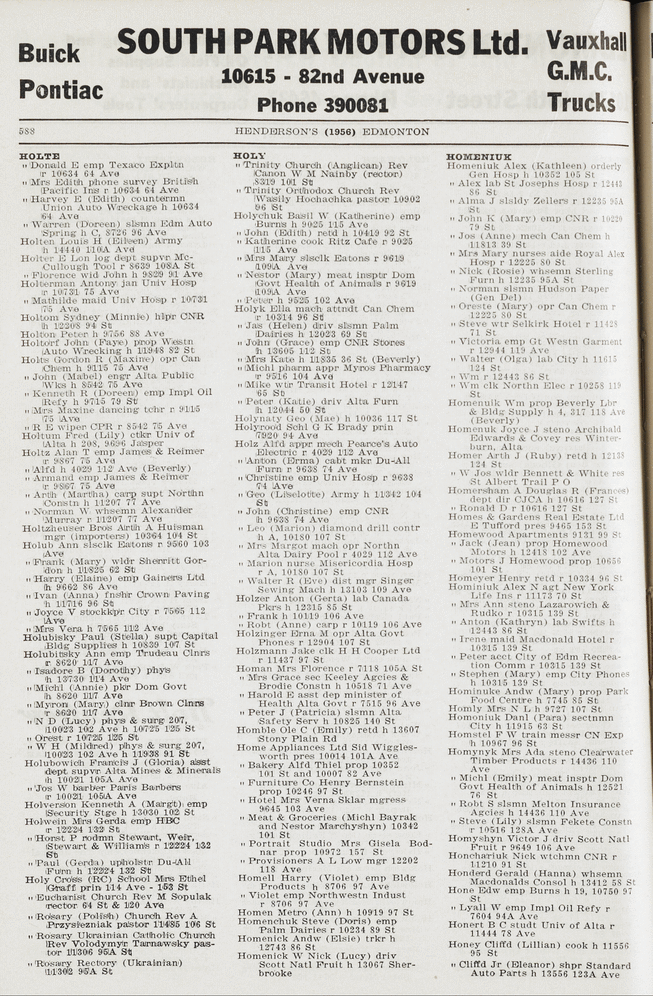 Buick
Pontiac
SOUTH PARK MOTORS Ltd.
10615 - 82nd Avenue
Phone 390081
Vauxhall
G.M.C.
Trucks
588
HENDERSON'S (1956) EDMONTON
HOLTE
" Donald E emp Texaco Expltn
r 10634 64 Ave
" Mrs Edith phone survey British
Pacific Ins r 10634 64 Ave
" Harvey E (Edith) countermn
Union Auto Wreckage h 10634
64 Ave
" Warren (Doreen) slsmn Edm Auto
Spring h C, 8726 96 Ave
Holten Louis H (Eileen) Army
h 14440 110A Ave
Holter E Lon log dept supvr Mc-
Cullough Tool r 8639 108A St
" Florence wid John h 9829 91 Ave
Holterman Antony jan Univ Hosp
r 10731 75 Ave
" Mathilde maid Univ Hosp r 10731
75 Ave
Holtom Sydney (Minnie) hlpr CNR
h 12208 94 St
Holton Peter h 9756 88 Ave
Holtorf John (Faye) prop Westn
Auto Wrecking h 11948 82 St
Holts Gordon R (Maxine) opr Can
Chem h 9115 75 Ave
" John (Mabel) engr Alta Public
Wks h 8542 75 Ave
" Kenneth R (Doreen) emp Impl Oil
Refy h 9715 79 St
" Mrs Maxine dancing tchr r 9115
75 Ave
" R E wiper CPR r 8542 75 Ave
Holtum Fred (Lily) ctkr Univ of
Alta h 208, 9696 Jasper
Holtz Alan T emp James & Reimer
r 9867 75 Ave
" Alfd h 4029 112 Ave (Beverly)
" Armand emp James & Reimer
r 9867 75 Ave
" Arth (Martha) carp supt Northn
Constn h 11207 77 Ave
" Norman W whsemn Alexander
Murray r 11207 77 Ave
Holtzheuser Bros Airth A Huisman
mgr (importers) 10364 104 St
Holub Ann slsclk Eatons r 9560 103
Ave
" Frank (Mary) wldr Sherritt Gor-
don h 11825 62 St
" Harry (Elaine) emp Gainers Ltd
h 9662 86 Ave
" Ivan (Anna) fnshr Crown Paving
h 11716 96 St
" Joyce V stockkpr City r 7565 112
Ave
" Mrs Vera h 7565 112 Ave
Holubisky Paul (Stella) supt Capital
Bldg Supplies h 10839 107 St
Holubitsky Ann emp Trudeau Clnrs
r 8620 117 Ave
" Isadore B (Dorothy) phys
h 13730 114 Ave
" Michl (Annie) pkr Dom Govt
h 8620 117 Ave
" Myron (Mary) clnr Brown Clnrs
r 8620 117 Ave
" N D (Lucy) phys & surg 207,
10023 102 Ave h 10725 125 St
" Orest r 10725 125 St
" W H (Mildred) phys & surg 207,
10023 102 Ave h 11938 91 St
Holubowich Francis J (Gloria) asst
dept supvr Alta Mines & Minerals
h 10021 105A Ave
" Jos W barber Paris Barbers
r 10021 105A Ave
Holverson Kenneth A (Margt) emp
Security Stge h 13030 102 St
Holwein Mrs Gerda emp HBC
r 12224 132 St
" Horst P rodmn Stewart, Weir,
Stewart & Williams r 12224 132
St
" Paul (Gerda) upholstr Du-All
Furn h 12224 132 St
Holy Cross (RC) School Mrs Ethel
Graff prin 114 Ave - 153 St
" Eucharist Church Rev M Sopulak
rector 64 St & 120 Ave
" Rosary (Polish) Church Rev A
Przysiezniak pastor 11485 106 St
" Rosary Ukrainian Catholic Church
Rev Volodymyr Tarnawsky pas-
tor 11306 95A St
" Rosary Rectory (Ukrainian)
11302 95A St
HOLY
" Trinity Church (Anglican) Rev
Canon W M Nainby (rector)
8319 101 St
" Trinity Orthodox Church Rev
Wasily Hochachka pastor 10902
96 St
Holychuk Basil W (Katherine) emp
Burns h 9025 115 Ave
" John (Edith) retd h 10419 92 St
" Katherine cook Ritz Cafe r 9025
115 Ave
" Mrs Mary slsclk Eatons r 9619
109A Ave
" Nestor (Mary) meat insptr Dom
Govt Health of Animals r 9619
109A Ave
" Peter h 9525 102 Ave
Holyk Ella mach attndt Can Chem
r 10314 96 St
" Jas (Helen) driv slsmn Palm
Dairies h 12023 69 St
" John (Grace) emp CNR Stores
h 13605 112 St
" Mrs Kate h 11835 36 St (Beverly)
" Michl pharm appr Myros Pharmacy
r 9516 104 Ave
" Mike wtr Transit Hotel r 12147
65 St
" Peter (Katie) driv Alta Furn
h 12044 50 St
Holynaty Geo (Mae) h 10036 117 St
Holyrood Schl G K Brady prin
7920 94 Ave
Holz Alfd appr mech Pearce's Auto
Electric r 4029 112 Ave
" Anton (Erma) cabt mkr Du-All
Furn r 9638 74 Ave
" Christine emp Univ Hosp r 9638
74 Ave
" Geo (Liselotte) Army h 11342 104
St
" John (Christine) emp CNR
h 9638 74 Ave
" Leo (Marion) diamond drill contr
h A, 10180 107 St
" Mrs Margot mach opr Northn
Alta Dairy Pool r 4029 112 Ave
" Marion nurse Misericordia Hosp
r A, 10180 107 St
" Walter R (Eve) dist mgr Singer
Sewing Mach h 13103 109 Ave
Holzer Anton (Gerta) lab Canada
Pkrs h 12315 85 St
" Frank h 10119 106 Ave
" Robt (Anne) carp r 10119 106 Ave
Holzinger Erna M opr Alta Govt
Phones r 12904 107 St
Holzmann Jake clk H H Cooper Ltd
r 11437 97 St
Homan Mrs Florence r 7118 105A St
" Mrs Grace sec Keeley Agcies &
Brodie Constn h 10518 71 Ave
" Harold E asst dep minister of
Health Alta Govt r 7515 96 Ave
" Peter J (Patricia) slsmn Alta
Safety Serv h 10825 140 St
Homble Ole C (Emily) retd h 13607
Stony Plain Rd
Home Appliances Ltd Sid Wiggles-
worth pres 10014 101A Ave
" Bakery Alfd Thiel prop 10352
101 St and 10007 82 Ave
" Furniture Co Henry Bernstein
prop 10246 97 St
" Hotel Mrs Verna Sklar mgress
9645 103 Ave
" Meat & Groceries (Michl Bayrak
and Nestor Marchyshyn) 10342
101 St
" Portrait Studio Mrs Gisela Bod-
nar prop 10972 157 St
" Provisioners A L Low mgr 12202
118 Ave
Homell Harry (Violet) emp Bldg
Products h 8706 97 Ave
" Violet emp Northwestn Indust
r 8706 97 Ave
Homen Metro (Ann) h 10919 97 St
Homenchuk Steve (Doris) emp
Palm Dairies r 10234 89 St
Homenick Andw (Elsie) trkr h
12743 86 St
Homenick W Nick (Lucy) driv
Scott Natl Fruit h 13067 Sher-
brooke
HOMENIUK
Homeniuk Alex (Kathleen) orderly
Gen Hosp h 10352 105 St
" Alex lab St Josephs Hosp r 12443
86 St
" Alma J slsldy Zellers r 12235 95A
St
" John K (Mary) emp CNR r 10229
79 St
" Jos (Anne) mech Can Chem h
11813 39 St
" Mrs Mary nurses aide Royal Alex
Hosp r 12225 80 St
" Nick (Rosie) whsemn Sterling
Furn h 12235 95A St
" Norman slsmn Hudson Paper
(Gen Del)
" Oreste (Mary) opr Can Chem r
12225 80 St
" Steve wtr Selkirk Hotel r 11428
71 St
" Victoria emp Gt Westn Garment
r 12944 119 Ave
" Walter (Olga) lab City h 11615
124 St
" Wm r 12443 86 St
" Wm clk Northn Elec r 10258 119
St
Homenuik Wm prop Beverly Lbr
& Bldg Supply h 4, 317 118 Ave
(Beverly)
Homenuk Joyce J steno Archibald
Edwards & Covey res Winter-
burn, Alta
Homer Arth J (Ruby) retd h 12138
124 St
" W Jos wldr Bennett & White res
St Albert Trail P O
Homersham A Douglas R (Frances)
dept dir CJCA h 10616 127 St
" Ronald D r 10616 127 St
Homes & Gardens Real Estate Ltd
E Tufford pres 9465 153 St
Homewood Apartments 9131 99 St
" Jack (Jean) prop Homewood
Motors h 12418 102 Ave
" Motors J Homewood prop 10656
101 St
Homeyer Henry retd r 10334 96 St
Hominiuk Alex N agt New York
Life Ins r 11173 70 St
" Mrs Ann steno Lazarowich &
Rudko r 10315 139 St
" Anton (Kathryn) lab Swifts h
12443 86 St
" Irene maid Macdonald Hotel r
10315 139 St
" Peter acct City of Edm Recrea-
tion Comm r 10315 139 St
" Stephen (Mary) emp City Phones
h 10315 139 St
Hominuke Andw (Mary) prop Park
Food Centre h 7745 85 St
Homly Mrs N L h 9727 107 St
Homoniuk Danl (Para) sectnmn
City h 11915 63 St
Homstel F W train messr CN Exp
h 10967 96 St
Homynyk Mrs Ada steno Clearwater
Timber Products r 14436 110
Ave
" Michl (Emily) meat insptr Dom
Govt Health of Animals h 12521
76 St
" Robt S slsmn Melton Insurance
Agcies h 14436 110 Ave
" Steve (Lily) slsmn Fekete Constn
r 10516 128A Ave
Homyshyn Victor J driv Scott Natl
Fruit r 9649 106 Ave
Honchariuk Nick wtchmn CNR r
11210 91 St
Honderd Gerald (Hanna) whsemn
Macdonalds Consol h 13412 58 St
Hone Edw emp Burns h 19, 10750 97
St
" Lyall W emp Impl Oil Refy r
7604 94A Ave
Honert B C studt Univ of Alta r
11444 78 Ave
Honey Cliffd (Lillian) cook h 11556
95 St
" Cliffd Jr (Eleanor) shpr Standard
Auto Parts h 13556 123A Ave